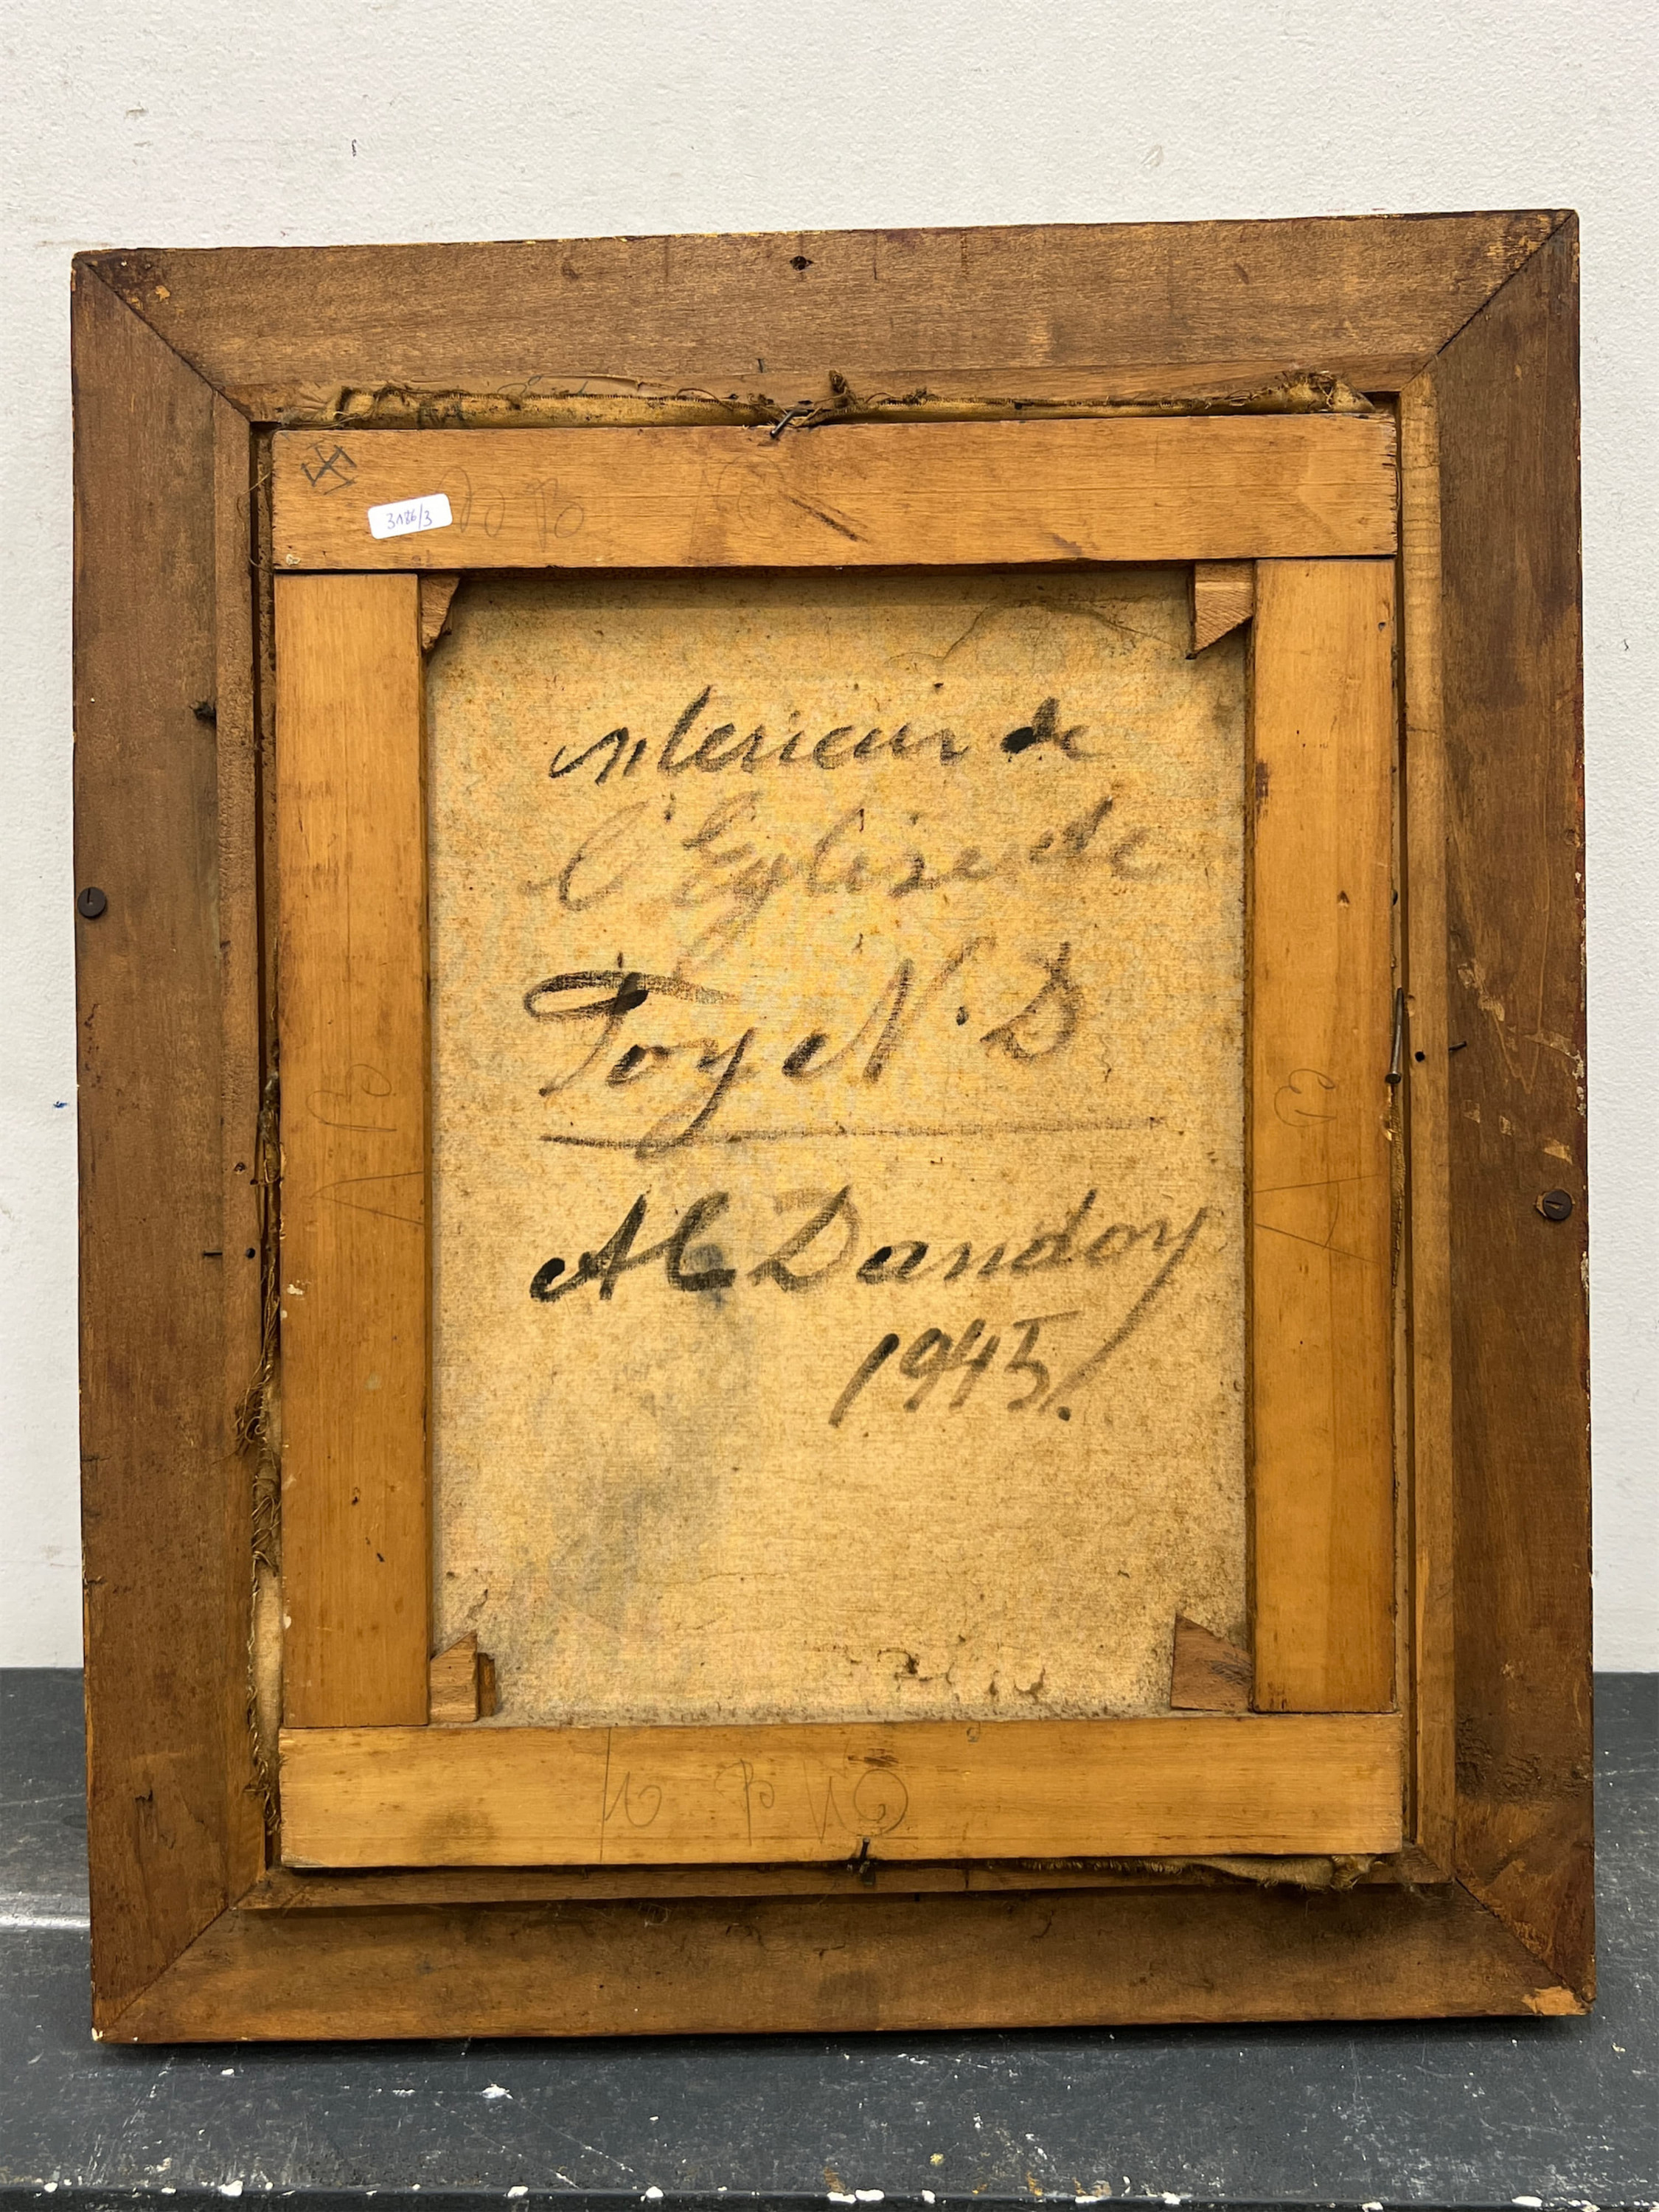 3186/3
Interieur de
l'Eglise de
Foy N. D
Al Dandoy
1945.